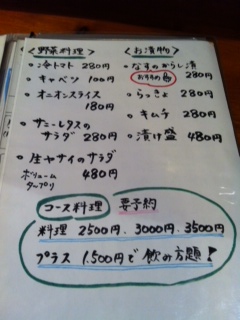 <野菜料理>
・冷トマト 280円
・キャベツ 100円
・オニオンスライス
180円
・サニーレタスの
サラダ 280円
・生ヤサイのサラダ
ボリューム
タップリ 480円
<お漬物>
・なすのからし漬
おすすめ 280円
・らっきょ 280円
・キムチ 280円
・漬け盛 480円
コース料理 要予約
料理 2500円. 3000円. 3500円
プラス 1.500円で飲み方題!